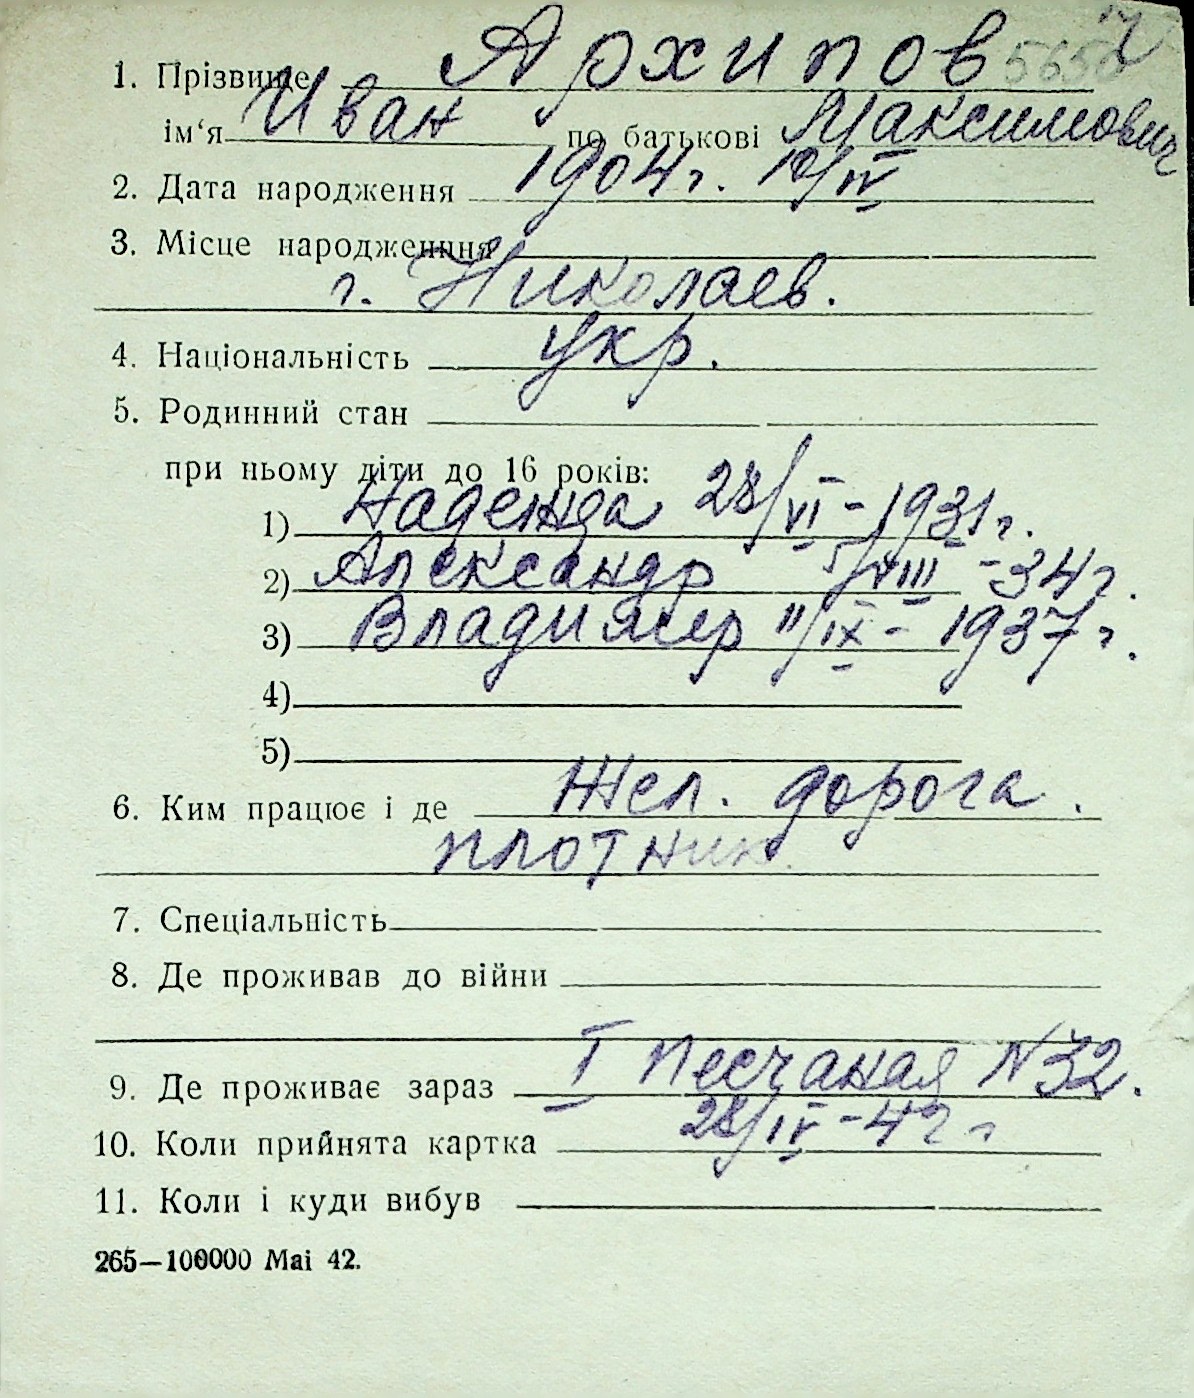 1. Прізвище Архипов
ім‘я Иван по батькові Максимович
2. Дата народження 1904г. 10/IV
3. Місце народженння
г. Николаев.
4. Національність укр.
5. Родинний стан
при ньому діти до 16 років:
1) Надежда 28/VI - 1931г.
2) Александр 5/VIII - 34г.
3) Владимир 11/IX - 1937г.
4)
5)
6. Ким працює і де Жел. дорога.
плотник.
7. Спеціальність
8. Де проживав до війни
9. Де проживає зараз I Песчаная N 32.
10. Коли прийнята картка 28/IV - 42 г
11. Коли і куди вибув
265—100000 Mai 42.